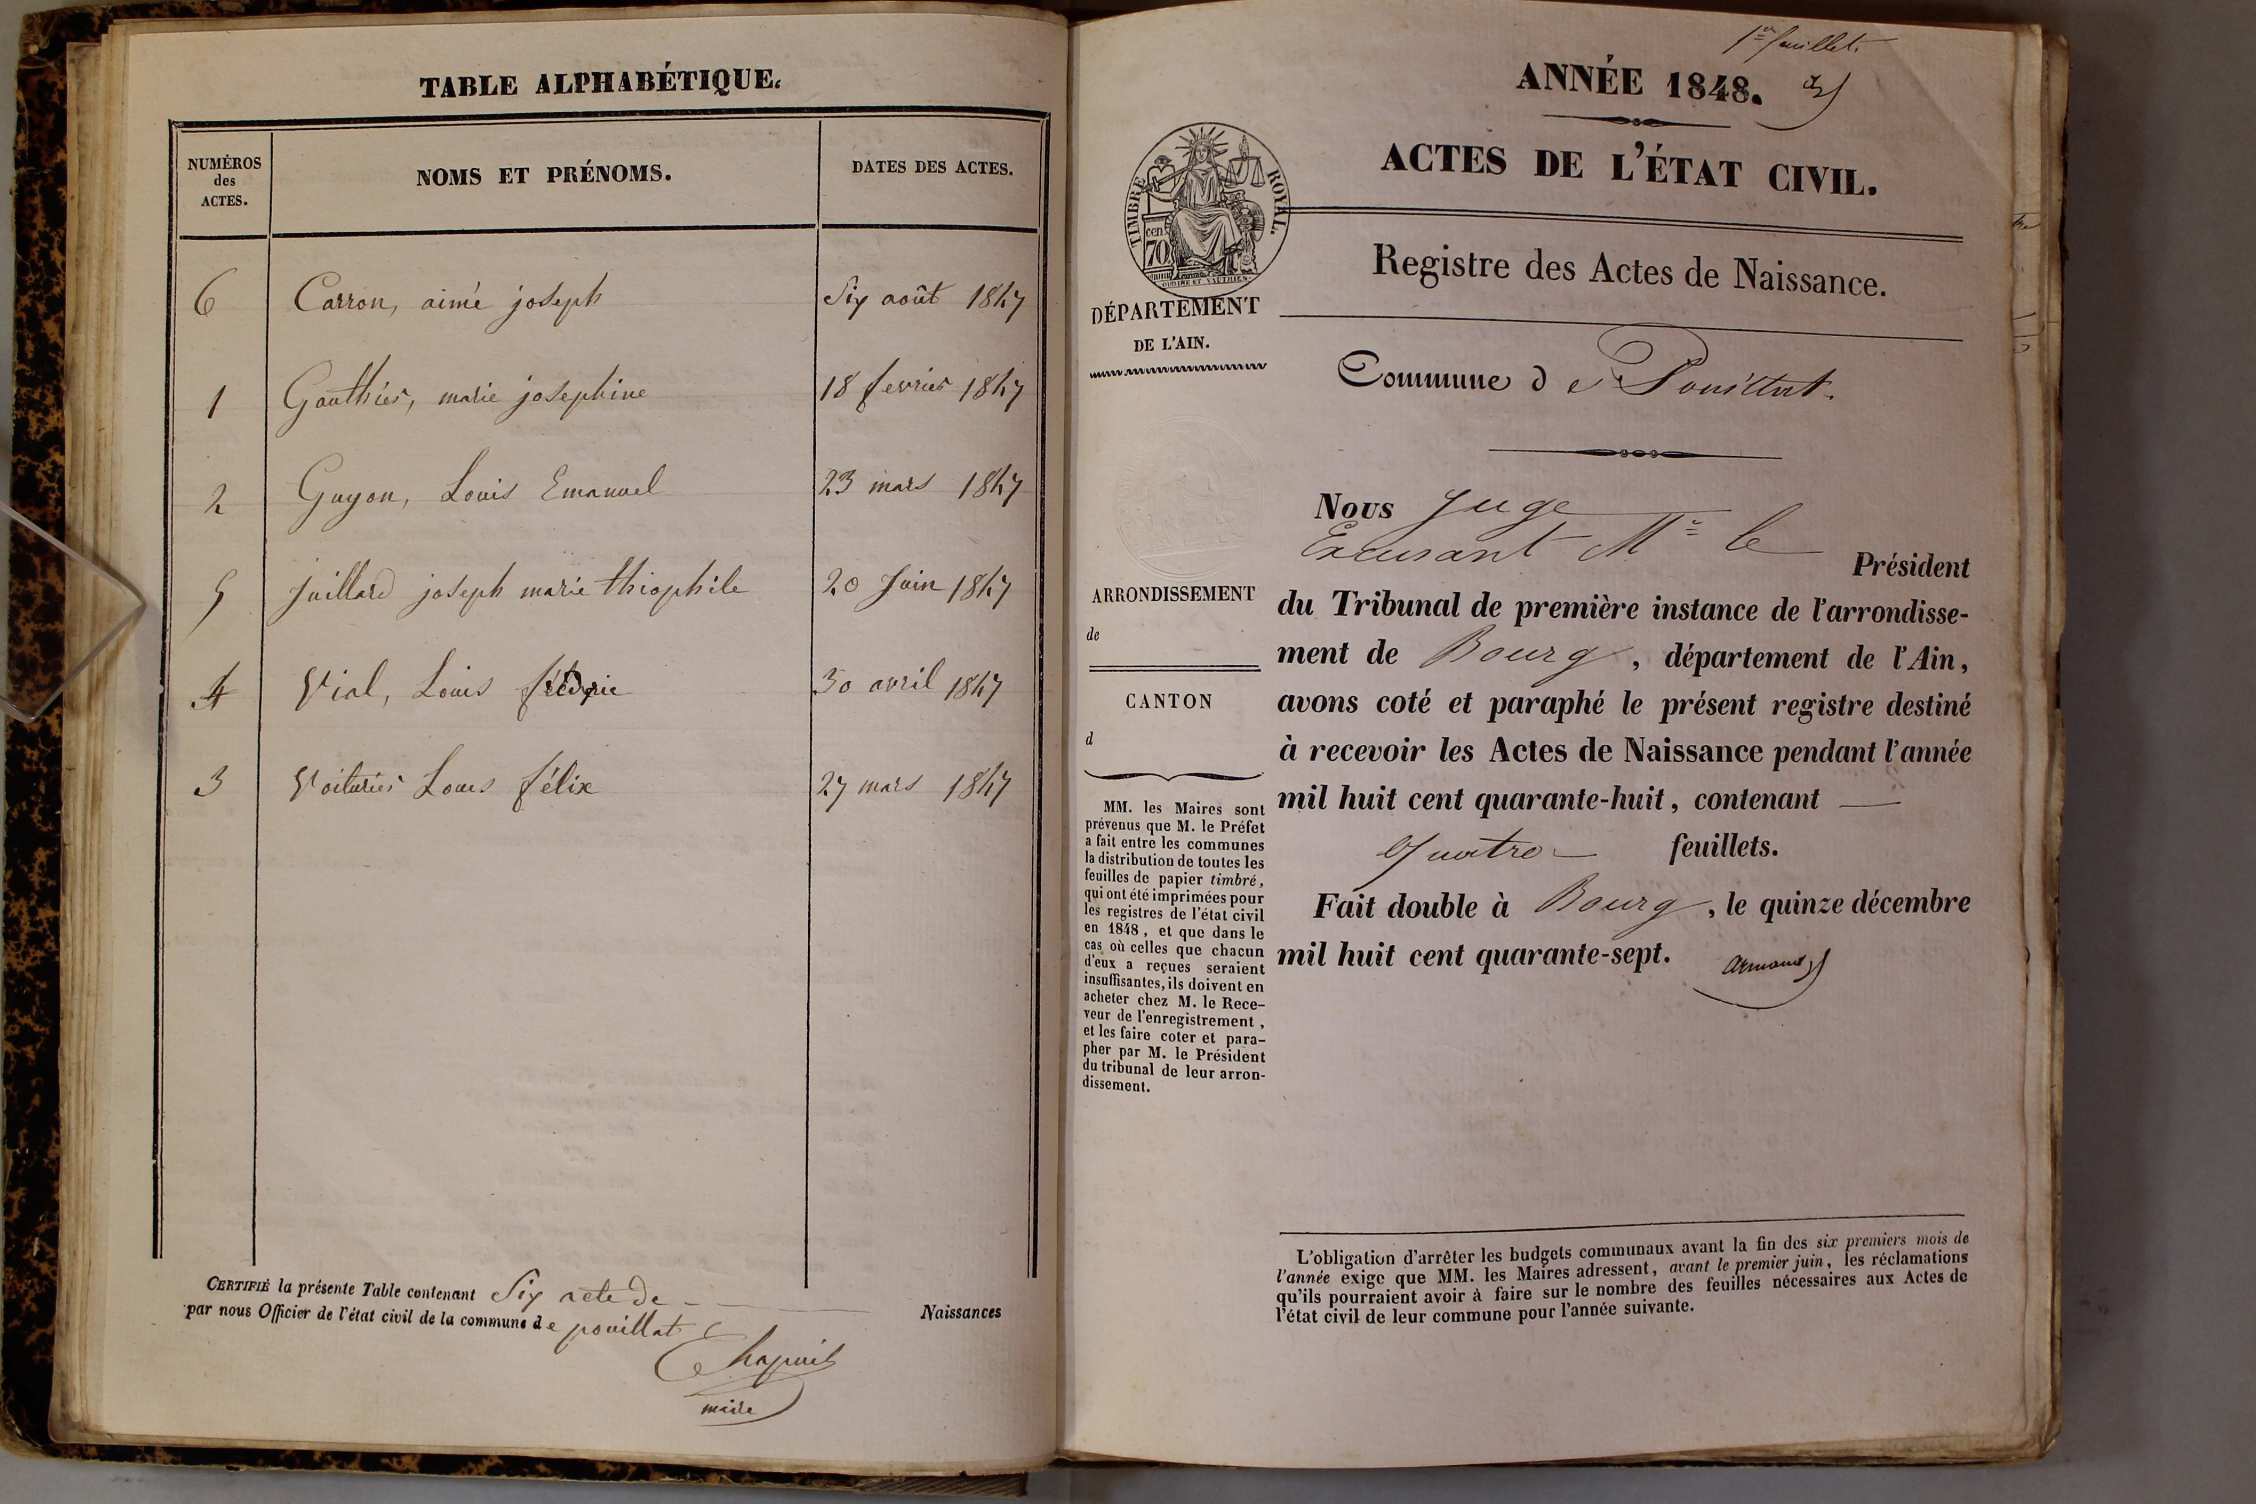 TABLE ALPHABÉTIQUE.
NUMÉROS
des
ACTES.
NOMS ET PRÉNOMS.
DATES DES ACTES.
6 Carron, aimé joseph Six août 1847
1 Gauthier, marie josephine 18 fevrier 1847
2 Guyon, Louis Emanuel 23 mars 1847
5 Juillard joseph marie thiophile 20 Juin 1847
4 Vial, Louis fréderic 30 avril 1847
3 Voiturier Louis félix 27 mars 1847
CERTIFIÉ la présente Table contenant Six acte de Naissances
par nous Officier de l'état civil de la commune de pouillat
Chapuis
maire
1er feuillet.
ANNÉE 1848.
ACTES DE L'ÉTAT CIVIL.
TIMBRE ROYAL.
cen.
70
Registre des Actes de Naissance.
DÉPARTEMENT
DE L'AIN.
Commune de Pouillat.
ARRONDISSEMENT
de
CANTON
d
MM. les Maires sont
prévenus que M. le Préfet
a fait entre les communes
la distribution de toutes les
feuilles de papier timbré,
qui ont été imprimées pour
les registres de l'état civil
en 1848, et que dans le
cas où celles que chacun
d'eux a reçues seraient
insuffisantes, ils doivent en
acheter chez M. le Rece-
veur de l'enregistrement,
et les faire coter et para-
pher par M. le Président
du tribunal de leur arron-
dissement.
Nous Juge
Excusant Mr le Président
du Tribunal de première instance de l'arrondisse-
ment de Bourg, département de l'Ain,
avons coté et paraphé le présent registre destiné
à recevoir les Actes de Naissance pendant l'année
mil huit cent quarante-huit, contenant
Quatre feuillets.
Fait double à Bourg, le quinze décembre
mil huit cent quarante-sept.
L'obligation d'arrêter les budgets communaux avant la fin des six premiers mois de
l'année exige que MM. les Maires adressent, avant le premier juin, les réclamations
qu'ils pourraient avoir à faire sur le nombre des feuilles nécessaires aux Actes de
l'état civil de leur commune pour l'année suivante.